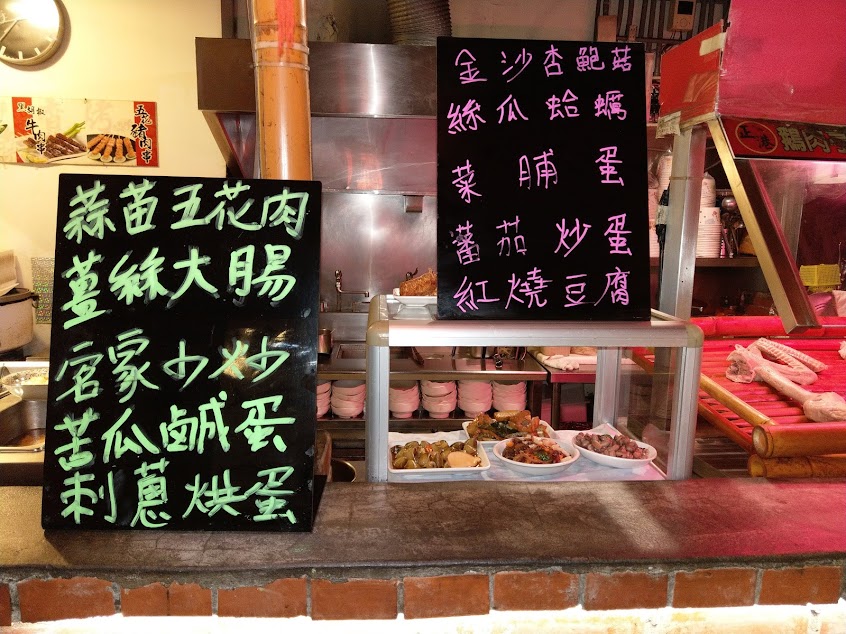 蒜苗五花肉
薑絲大腸
客家小炒
苦瓜鹹蛋
刺蔥烘蛋
金沙杏鮑菇
絲瓜蛤蠣
菜脯蛋
蕃茄炒蛋
紅燒豆腐
黑胡椒
牛肉串
五花
豬肉串
正港
鵝肉亭